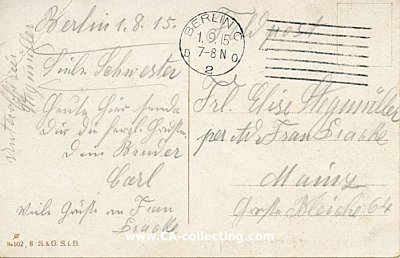 Berlin 1.8.15.
Liebe Schwester
Heute hier sende
Dir die herzl. Grüße
Dein Bruder
Carl
Viele Grüße an Frau
Feldpost
BERLIN C
1.9.15
7-8 N
2
Frl. Elise Stegmüller
per Adr. Frau
Mainz
Große Bleiche 64
Stegmüller
№102 8 S.& G. S.i.B.
www.CA-collecting.com